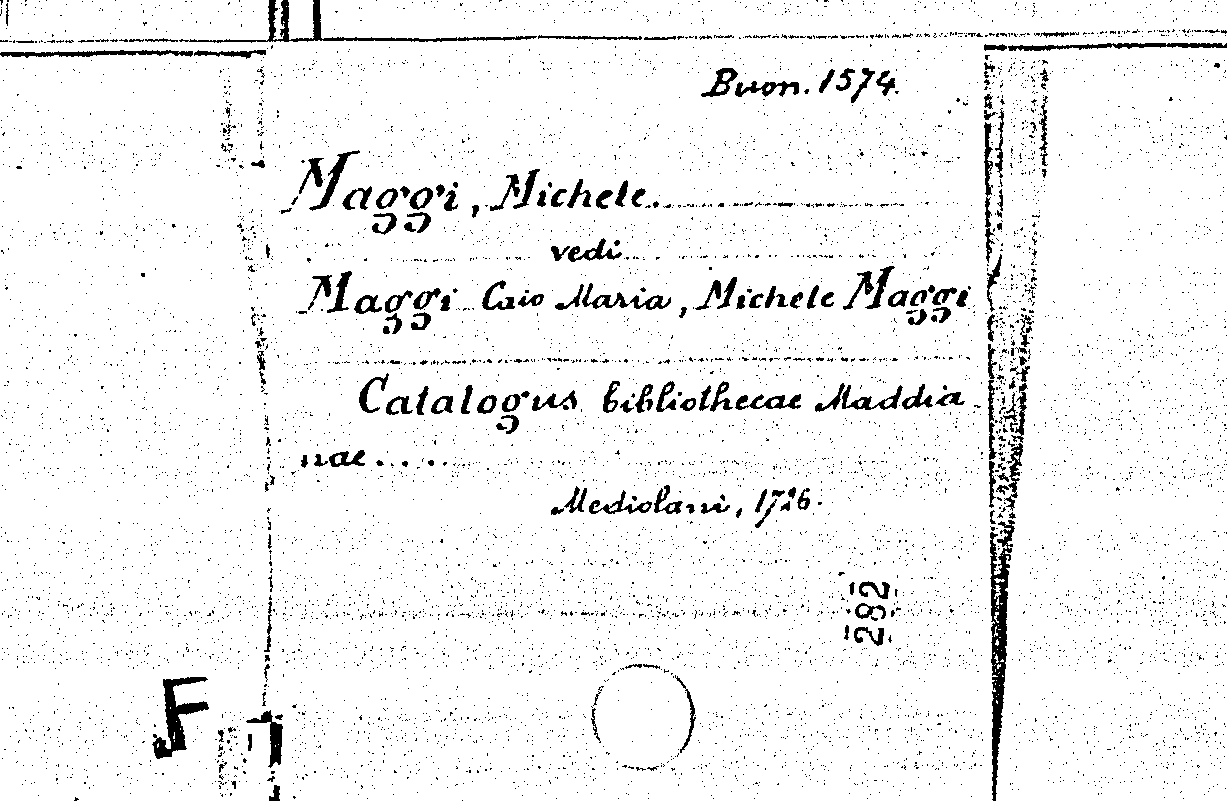 Buon. 1574.
Maggi, Michele.
vedi
Maggi Caio Maria, Michele Maggi
Catalogus bibliothecae Maddia
nae....
Mediolani, 1726.
282
F